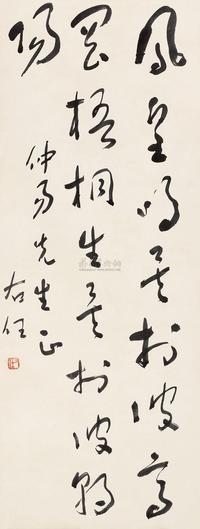 鳳皇鳴矣於彼高
岡梧桐生矣於彼朝
陽
仲易先生正
右任